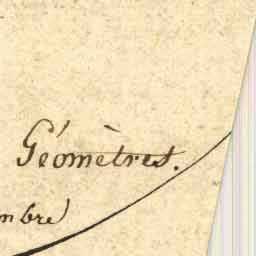 Géomètres.
mbre